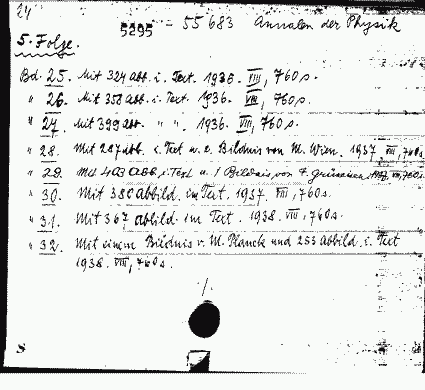 24
5295 - 55683 Annalen der Physik
5. Folge.
Bd. 25. Mit 324 Abb. i. Text. 1936. VIII, 760 S.
" 26. Mit 358 Abb. i. Text. 1936. VIII, 760 S.
" 27. Mit 399 Abb. " " . 1936. VIII, 760 S.
" 28. Mit 287 Abb. i. Text u. e. Bildnis von M. Wien. 1937. VIII, 760 S.
" 29. Mit 403 Abb. i. Text u. 1 Bildnis von
" 30. Mit 380 Abbild. im Text. 1937. VIII, 760 S.
" 31. Mit 367 Abbild. im Text. 1938. VIII, 760 S.
" 32. Mit einem Bildnis v. M. Planck und 253 Abbild. i. Text
1938. VIII, 760 S.